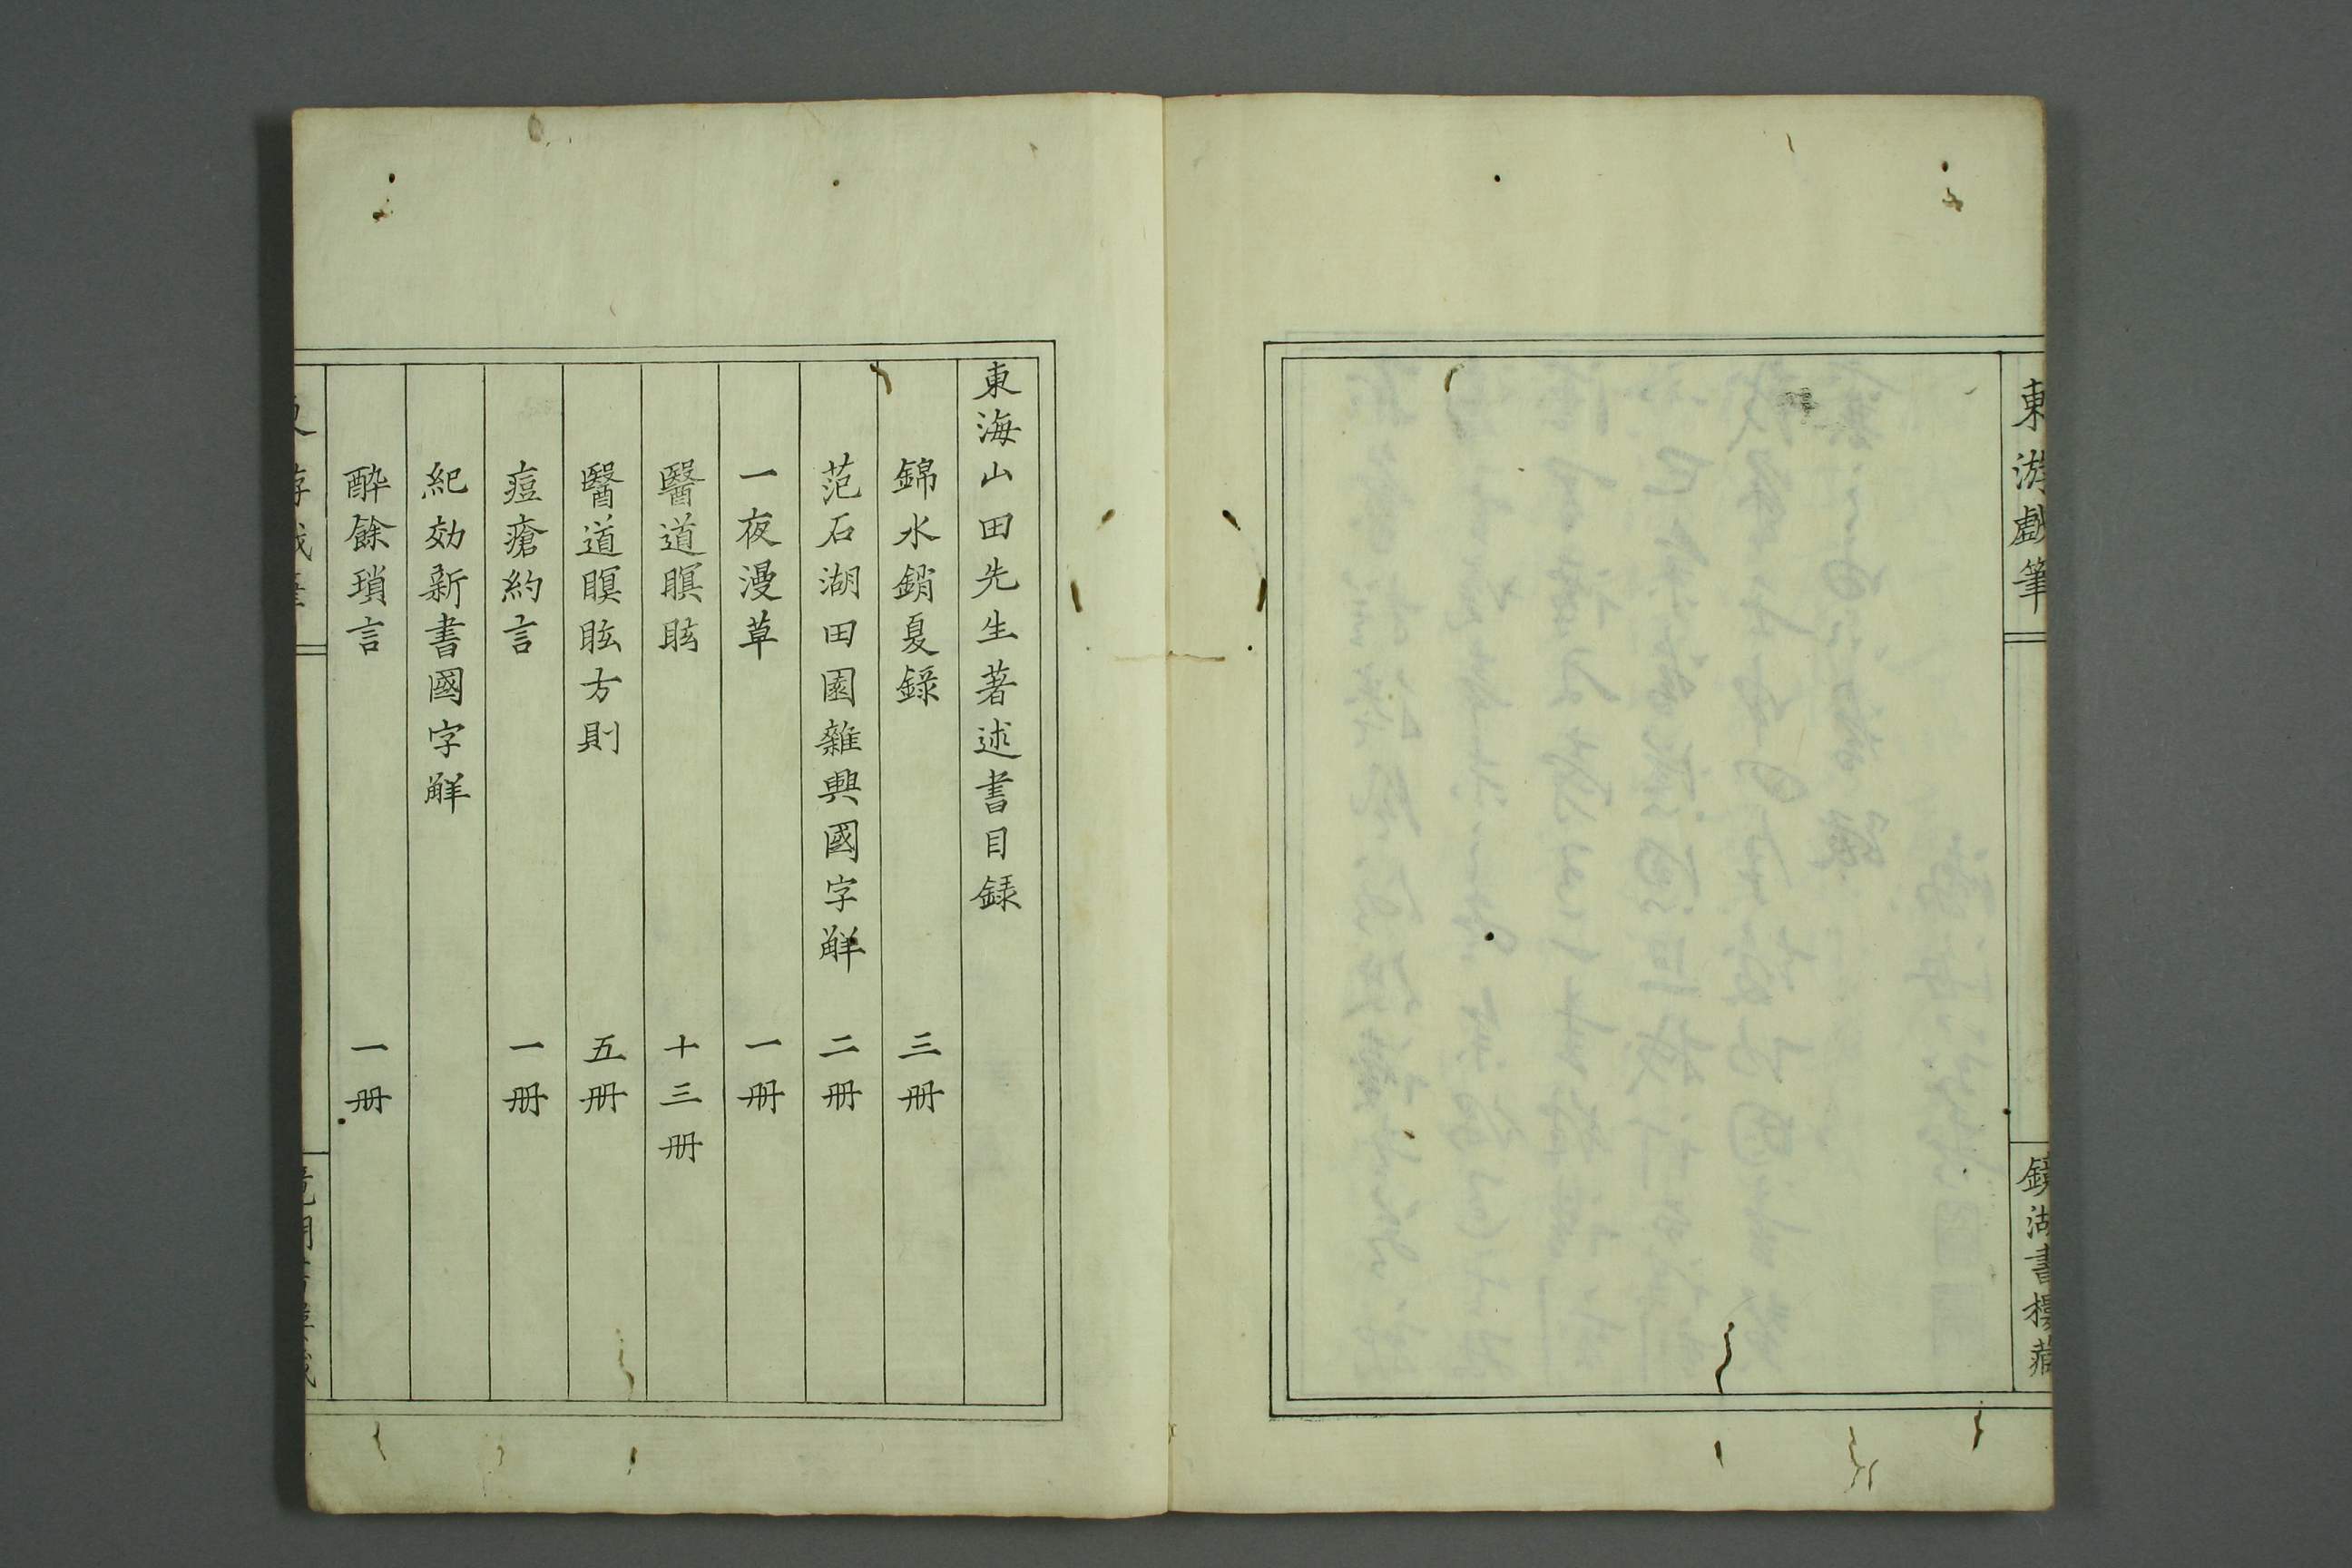 東游戲筆
鏡湖書樓藏
東海山田先生著述書目録
錦水銷夏錄 三册
范石湖田園雜興國字解 二册
一夜漫草 一册
醫道瞑眩 十三册
醫道瞑眩方則 五册
痘瘡約言 一册
紀効新書國字解
酔餘瑣言 一册